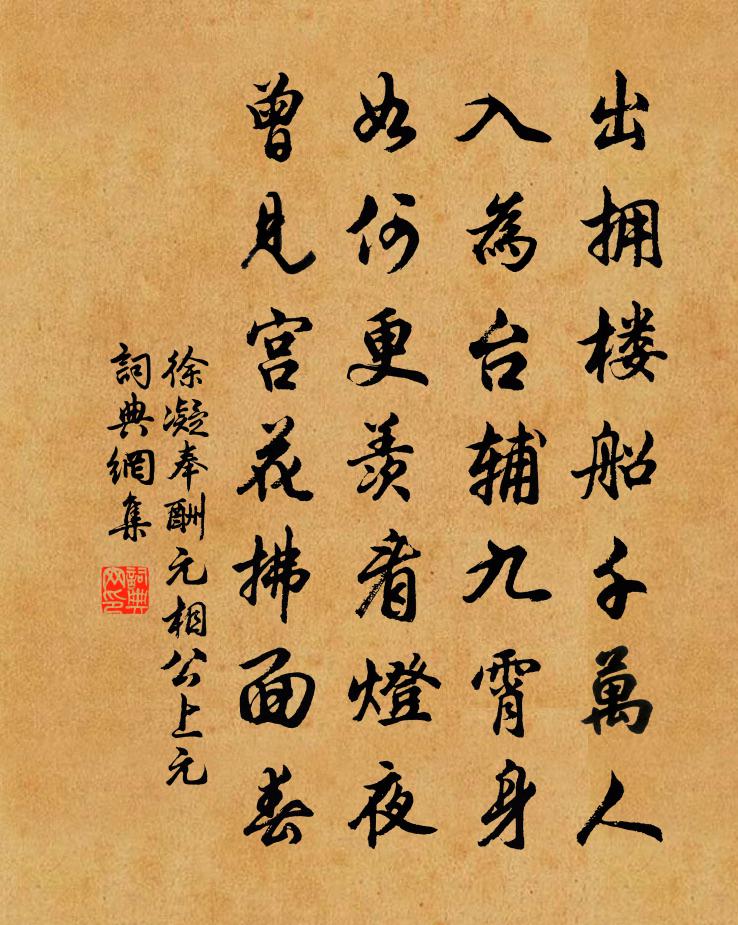 出拥楼船千萬人
入為台辅九霄身
如何更羨看燈夜
曾見宫花拂面春
徐凝奉酬元相公上元
詞典網集
詞典網印